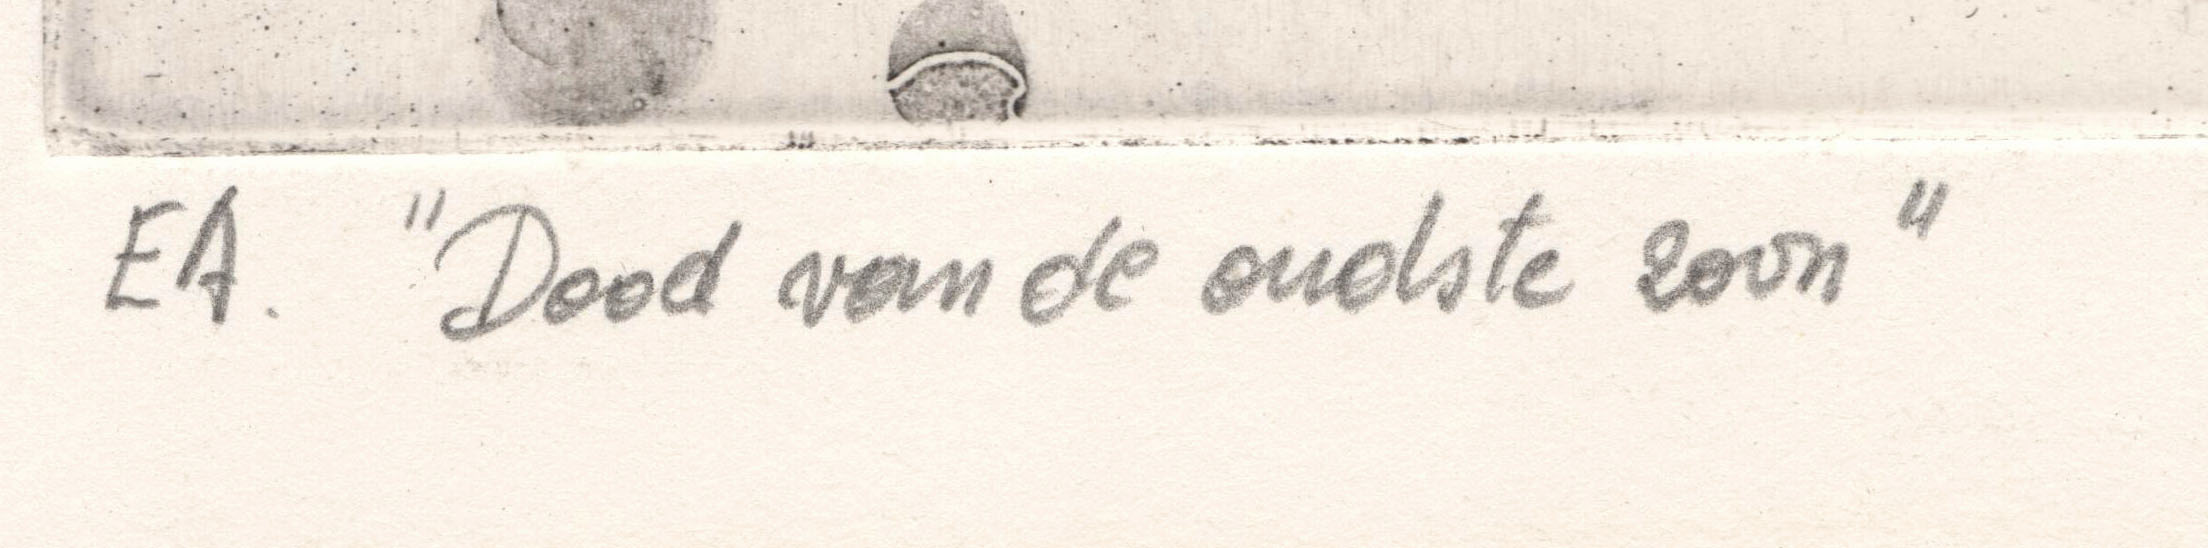 EA. "Dood van de oudste zoon"